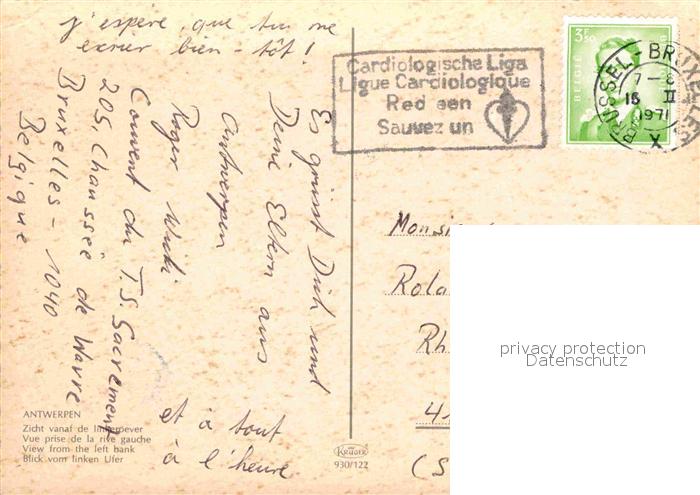 j'espère, que tu me
écrier bien-tôt!
Es grüsst Dich und
Deine Eltern aus
Antwerpen
Roger
Couvent du T.S. Sacrement
205, Chaussée de Wavre
Bruxelles - 1040
Belgique
et à tout
à l'heure
ANTWERPEN
Zicht vanaf de linkeroever
Vue prise de la rive gauche
View from the left bank
Blick vom linken Ufer
KRÜGER
930/122
Cardiologische Liga
Ligue Cardiologique
Red een
Sauvez un
3F50
BELGIE
BRUSSEL
BRUXELLES
7-8
16 II
1971
X
Monsi
Rola
Rh
4
(S
privacy protection
Datenschutz